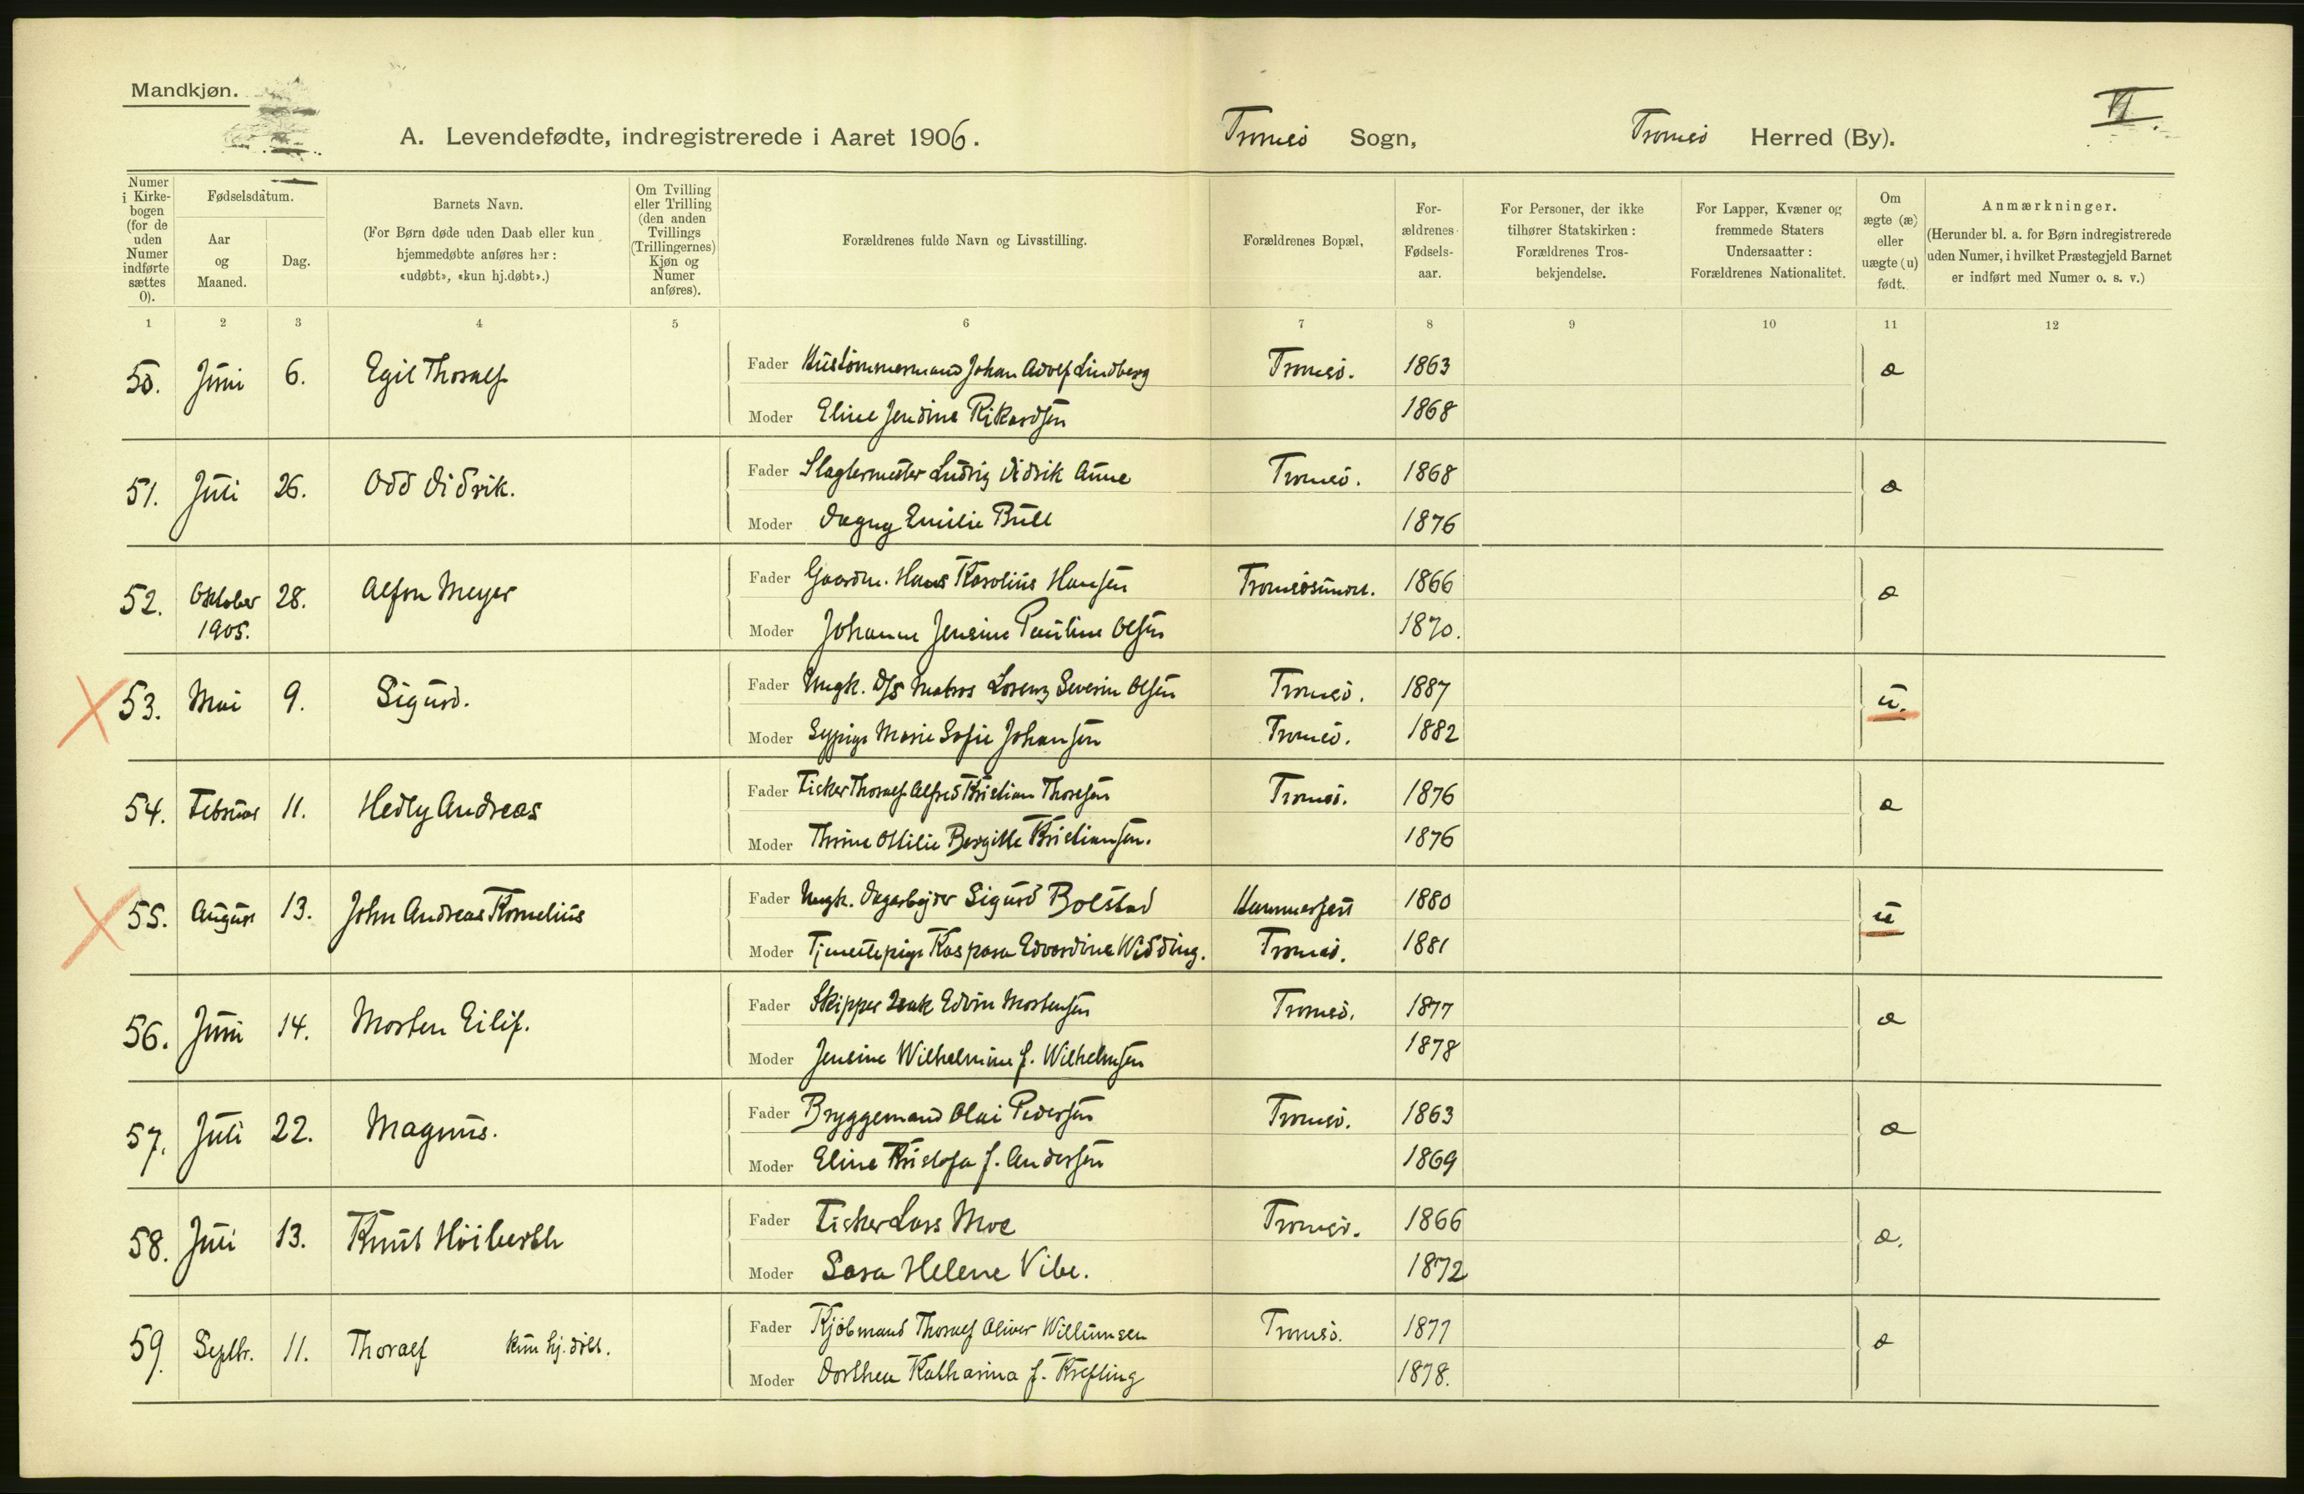 Mandkjøn.
VI.
A. Levendefødte, indregistrerede i Aaret 1906. Tromsö Sogn, Tromsö Herred (By).
Numer i Kirkebogen (for de uden Numer indførte sættes 0).
Fødselsdatum.
Aar og Maaned.
Dag.
Barnets Navn.
(For Børn døde uden Daab eller kun hjemmedøbte anføres her: «udøbt», «kun hj.døbt».)
Om Tvilling eller Trilling (den anden Tvillings (Trillingernes) Kjøn og Numer anføres).
Forældrenes fulde Navn og Livsstilling.
Forældrenes Bopæl,
Forældrenes Fødselsaar.
For Personer, der ikke tilhører Statskirken: Forældrenes Trosbekjendelse.
For Lapper, Kvæner og fremmede Staters Undersaatter: Forældrenes Nationalitet.
Om ægte (æ) eller uægte (u) født.
Anmærkninger.
(Herunder bl. a. for Børn indregistrerede uden Numer, i hvilket Præstegjeld Barnet er indført med Numer o. s. v.)
1 2 3 4 5 6 7 8 9 10 11 12
50. Juni 6. Egil Thoralf Fader Hustömmermand Johan Adolf Lindberg Tromsö. 1863 æ
Moder Eline Jendine Rikardsen 1868
51. Juli 26. Odd Didrik. Fader Slagtermester Ludvig Didrik Aune Tromsö. 1868 æ
Moder Dagny Emilie Bull 1876
52. Oktober 1905. 28. Alfon Meyer Fader Gaardm. Hans Karolius Hansen Tromsösundet. 1866 æ
Moder Johanne Jensine Pauline Olsen 1870.
53. Mai 9. Sigurd. Fader Ungk. D/S Matros Lorenz Severin Olsen Tromsö. 1887 u.
Moder Sypige Marie Sofie Johansen Tromsö. 1882
54. Februar 11. Hedly Andreas Fader Fisker Thoralf Alfred Kristian Thoresen Tromsö. 1876 æ
Moder Thrine Ottilie Bergitte Kristiansen. 1876
55. August 13. John Andreas Kornelius Fader Ungk. Dagarbejder Sigurd Bolstad Hammerfest 1880 u
Moder Tjenestepige Kaspara Edvardine Widding. Tromsö. 1881
56. Juni 14. Morten Eilif. Fader Skipper Isak Edvin Mortensen Tromsö. 1877 æ
Moder Jensine Wilhelmine f. Wilhelmsen 1878
57. Juli 22. Magnus. Fader Bryggemand Olai Pedersen Tromsö. 1863 æ
Moder Eline Kristofa f. Andersen 1869
58. Juli 13. Knut Höiberth Fader Fisker Lars Moe Tromsö. 1866 æ.
Moder Sara Helene Vibe. 1872
59. Septbr. 11. Thoralf kun hj. döbt. Fader Kjöbmand Thoralf Oliver Willumsen Tromsö. 1877 æ
Moder Dorthea Katharina f. Krefting 1878.